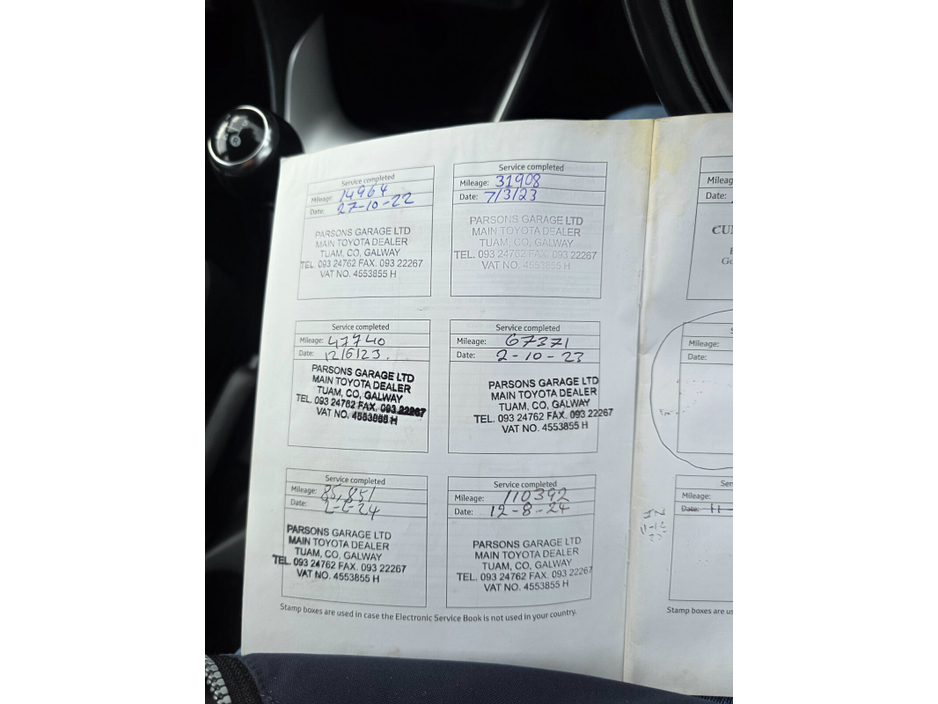 Service completed
Mileage: 14964
Date: 27-10-22
PARSONS GARAGE LTD
MAIN TOYOTA DEALER
TUAM, CO, GALWAY
TEL. 093 24762 FAX. 093 22267
VAT NO. 4553855 H
Service completed
Mileage: 31908
Date: 7/3/23
PARSONS GARAGE LTD
MAIN TOYOTA DEALER
TUAM, CO, GALWAY
TEL. 093 24762 FAX. 093 22267
VAT NO. 4553855 H
Service completed
Mileage: 47740
Date: 12/6/23.
PARSONS GARAGE LTD
MAIN TOYOTA DEALER
TUAM, CO, GALWAY
TEL. 093 24762 FAX. 093 22267
VAT NO. 4553855 H
Service completed
Mileage: 67371
Date: 2-10-23
PARSONS GARAGE LTD
MAIN TOYOTA DEALER
TUAM, CO, GALWAY
TEL. 093 24762 FAX. 093 22267
VAT NO. 4553855 H
Service completed
Mileage: 85,851
Date: 2-2-24
PARSONS GARAGE LTD
MAIN TOYOTA DEALER
TUAM, CO, GALWAY
TEL. 093 24762 FAX. 093 22267
VAT NO. 4553855 H
Service completed
Mileage: 110392
Date: 12-8-24
PARSONS GARAGE LTD
MAIN TOYOTA DEALER
TUAM, CO, GALWAY
TEL. 093 24762 FAX. 093 22267
VAT NO. 4553855 H
Stamp boxes are used in case the Electronic Service Book is not used in your country.
Mileag
Date:
CU
Mileage:
Date:
Mileage:
Date: 11-
Stamp boxes are us